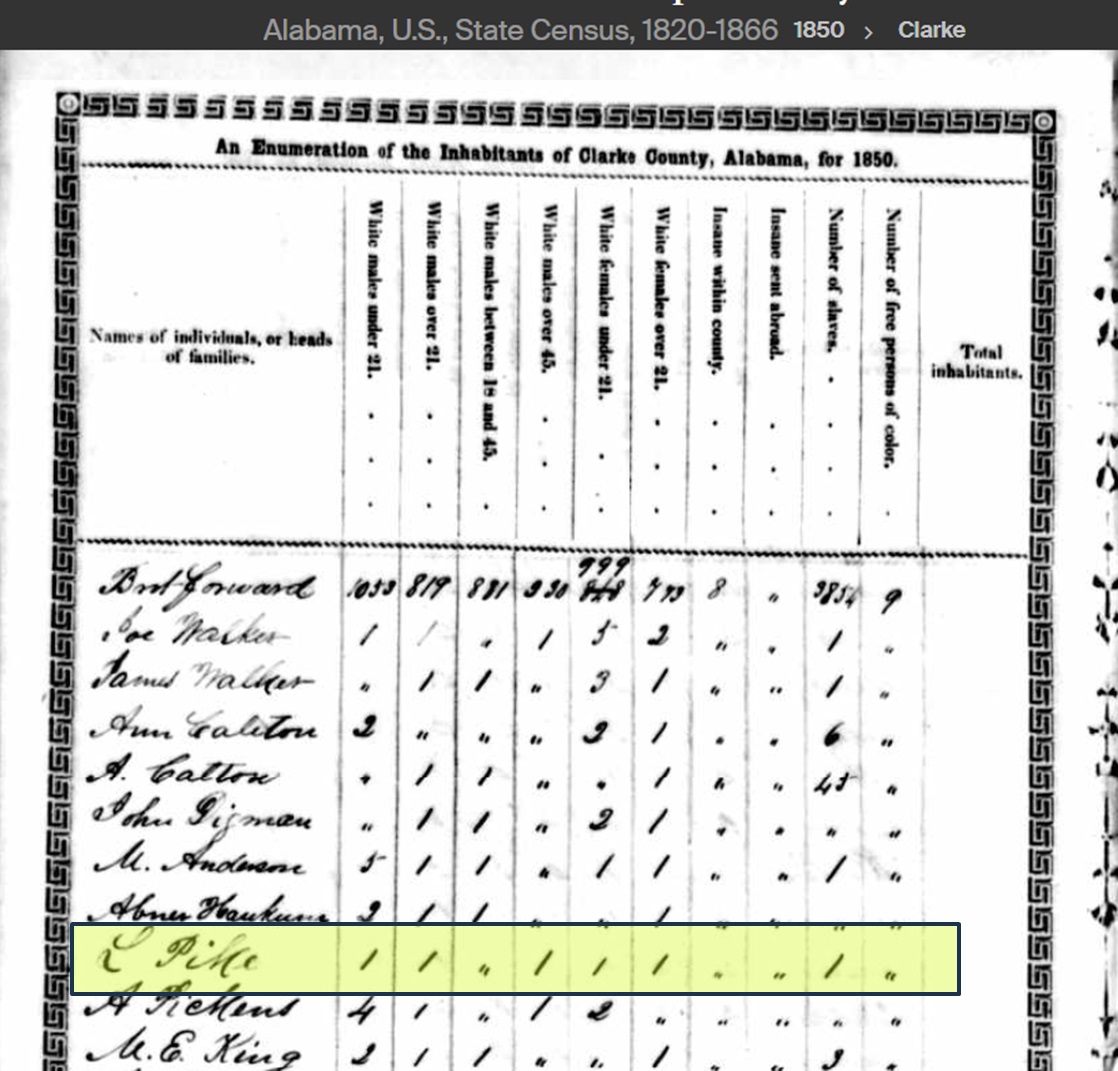 Alabama, U.S., State Census, 1820-1866 1850 > Clarke
An Enumeration of the Inhabitants of Clarke County, Alabama, for 1850.
Names of individuals, or heads
of families.
White males under 21.
White males over 21.
White males between 18 and 45.
White males over 45.
White females under 21.
White females over 21.
Insane within county.
Insane sent abroad.
Number of slaves.
Number of free persons of color.
Total
inhabitants.
999
Brot forward 1053 819 881 848 793 8 " 3854 9
Joe Walker 1 1 " 1 5 2 " " 1 "
James Walker " 1 1 " 3 1 " " 1 "
Ann 2 " " " 2 1 " " 6 "
A. Calton " 1 1 " " 1 " " 45 "
John " 1 1 " 2 1 " " " "
M. Anderson 5 1 1 " 1 1 " " 1 "
Abner 2 1 1 " " 1 " " " "
L Pike 1 1 " 1 1 1 " " 1 "
A Pickens 4 1 " 1 2 " " " " "
M. E. King 2 1 1 " " 1 " " 3 "